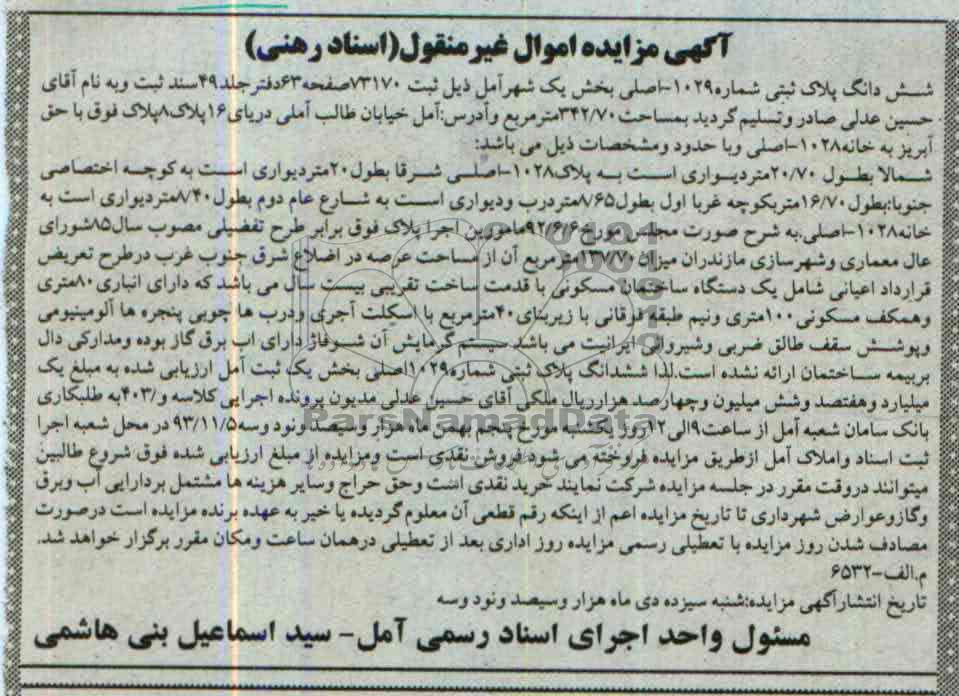 آگهی مزایده اموال غیرمنقول(اسناد رهنی)
شش دانگ پلاک ثبتی شماره۱۰۲۹-اصلی بخش یک شهرآمل ذیل ثبت ۷۳۱۷۰صفحه۶۳دفترجلد۴۹سند ثبت وبه نام آقای
حسین عدلی صادر وتسلیم گردید بمساحت۳۴۲/۷۰مترمربع وآدرس:آمل خیابان طالب آملی دریای۱۶پلاک۸پلاک فوق با حق
آبریز به خانه۱۰۲۸-اصلی وبا حدود ومشخصات ذیل می باشد:
شمالا بطول ۲۰/۷۰متردیواری است به پلاک۱۰۲۸-اصلی شرقا بطول۲۰متردیواری است به کوچه اختصاصی
جنوبا:بطول۱۶/۷۰متربکوچه غربا اول بطول۸/۶۵متردرب ودیواری است به شارع عام دوم بطول۸/۴۰متردیواری است به
خانه۱۰۲۸-اصلی.به شرح صورت مجلس مورخ۹۲/۶/۶مامورین اجرا پلاک فوق برابر طرح تفضیلی مصوب سال۸۵شورای
عال معماری وشهرسازی مازندران میزان۱۳۷/۷۰مترمربع آن از مساحت عرصه در اضلاع شرق جنوب غرب درطرح تعریض
قرارداد اعیانی شامل یک دستگاه ساختمان مسکونی با قدمت ساخت تقریبی بیست سال می باشد که دارای انباری۸۰متری
وهمکف مسکونی۱۰۰متری ونیم طبقه فوقانی با زیربنای۴۰مترمربع با اسکلت آجری ودرب ها چوبی پنجره ها آلومینیومی
وپوشش سقف طالق ضربی وشیروانی ایرانیت می باشد سیستم گرمایش آن شوفاژ دارای اب برق گاز بوده ومدارکی دال
بربیمه ساختمان ارائه نشده است.لذا ششدانگ پلاک ثبتی شماره۱۰۲۹اصلی بخش یک ثبت آمل ارزیابی شده به مبلغ یک
میلیارد وهفتصد وشش میلیون وچهارصد هزارریال ملکی آقای حسین عدلی مدیون پرونده اجرایی کلاسه و/۴۰۳به طلبکاری
بانک سامان شعبه آمل از ساعت۹الی۱۲روز یکشنبه مورخ پنجم بهمن ماه هزار وسیصد ونود وسه۹۳/۱۱/۵ در محل شعبه اجرا
ثبت اسناد واملاک آمل ازطریق مزایده فروخته می شود فروش نقدی است ومزایده از مبلغ ارزیابی شده فوق شروع طالبین
میتوانند دروقت مقرر در جلسه مزایده شرکت نمایند خرید نقدی است وحق حراج وسایر هزینه ها مشتمل بردارایی آب وبرق
وگازوعوارض شهرداری تا تاریخ مزایده اعم از اینکه رقم قطعی آن معلوم گردیده یا خیر به عهده برنده مزایده است درصورت
مصادف شدن روز مزایده با تعطیلی رسمی مزایده روز اداری بعد از تعطیلی درهمان ساعت ومکان مقرر برگزار خواهد شد.
م.الف-۶۵۳۲
تاریخ انتشارآگهی مزایده:شنبه سیزده دی ماه هزار وسیصد ونود وسه
مسئول واحد اجرای اسناد رسمی آمل- سید اسماعیل بنی هاشمی
ParsNamadData